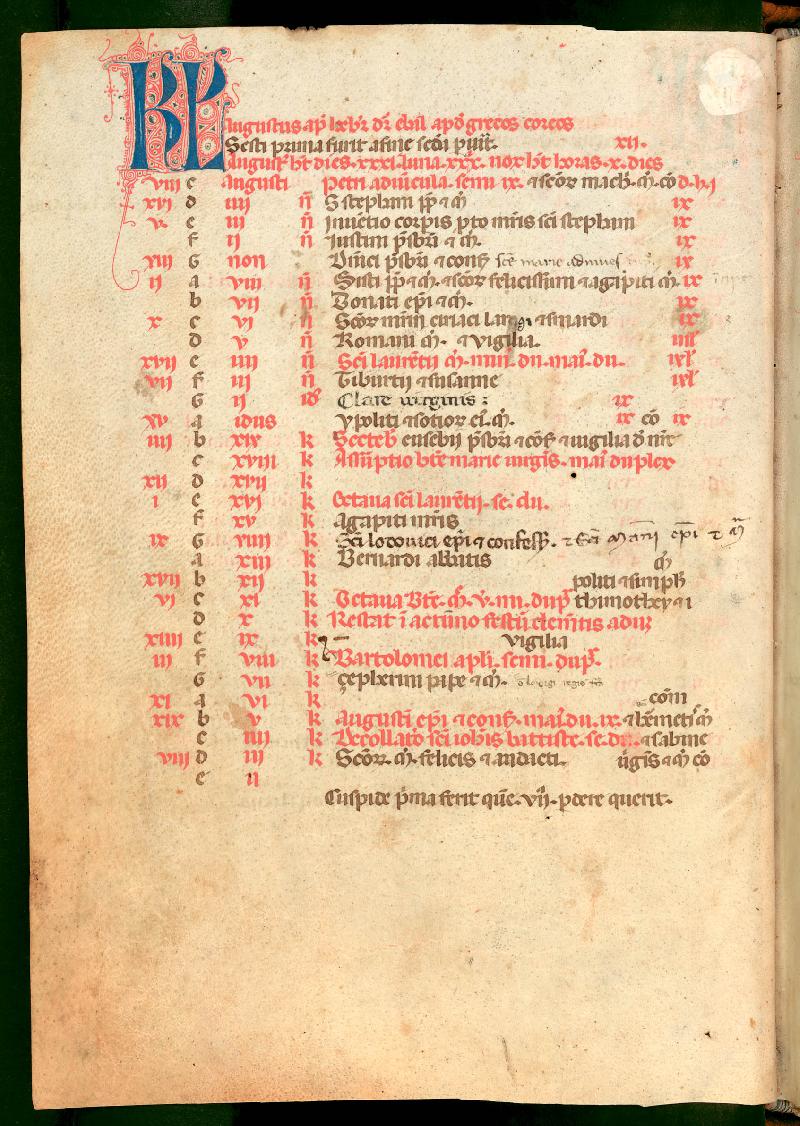 KL
Augustus ap hebr dr ebul apd grecos coreos
Sesti prima furit a fine scda puit. xii.
August ht dies. xxxi. luna. xxx. nox ht horas. x. dies
viii c augusti Petri ad uicula. semi ix. ⁊ scor mach. m. co
xvi d iiii n S stephani pp ⁊ m ix
v. e iii n Inuetio corpis pto mris sci stephani ix
f ii n Iustini psbri ⁊ m. ix
xiii G non Dinici psbri ⁊ conf sce marie ad niues ix
ii a viii n Sisti pp ⁊ m. ⁊ scor felicissimi ⁊ agapiti m. ix
b vii n Donati epi ⁊ m. ix
x c vi n Scor mrm ciriaci ⁊ smardi ix
d v n Romani m. ⁊ vigilia. iiii
xvii e iiii n Sci lauretii m. mai. du.
vii f iii n Tiburtii ⁊ susanne
G ii id Clare uirginis : ix
xv a idus ypoliti ⁊ sotior ei. m. ix co ix
iiii b xix k eusebii psbri ⁊ cof ⁊ uigilia
c xviii k Assuptio bte marie uirgis. mai duplex
xii d xvii k
i e xvi k Octaua sci lauretii. se. du.
f xv k agapiti mris
ix G xiiii k Sci lodouici epi ⁊ confess. ⁊ Sci epi ⁊ m
a xiii k Bernardi abbatis m
xvii b xii k politi ⁊ simph
vi c xi k Octaua bte. m. v. dup thimothey ⁊ i
d x k Restat i aeterno festu clemetis adiu
xiiii e ix k vigilia
iii f viii k Bartolomei apli. semi. dup.
G vii k çepherini pape ⁊ m.
xi a vi k com
xix b v k Augusti epi ⁊ conf. mai. du. ix. ⁊ hmetis m
c iiii k Decollatio sci iohis battiste. se. du. ⁊ sabine
viii d iii k Scor. m. felicis ⁊ audacti. uigis ⁊ m co
e ii
Cuspide pma ferit que. vii. pdere querit.